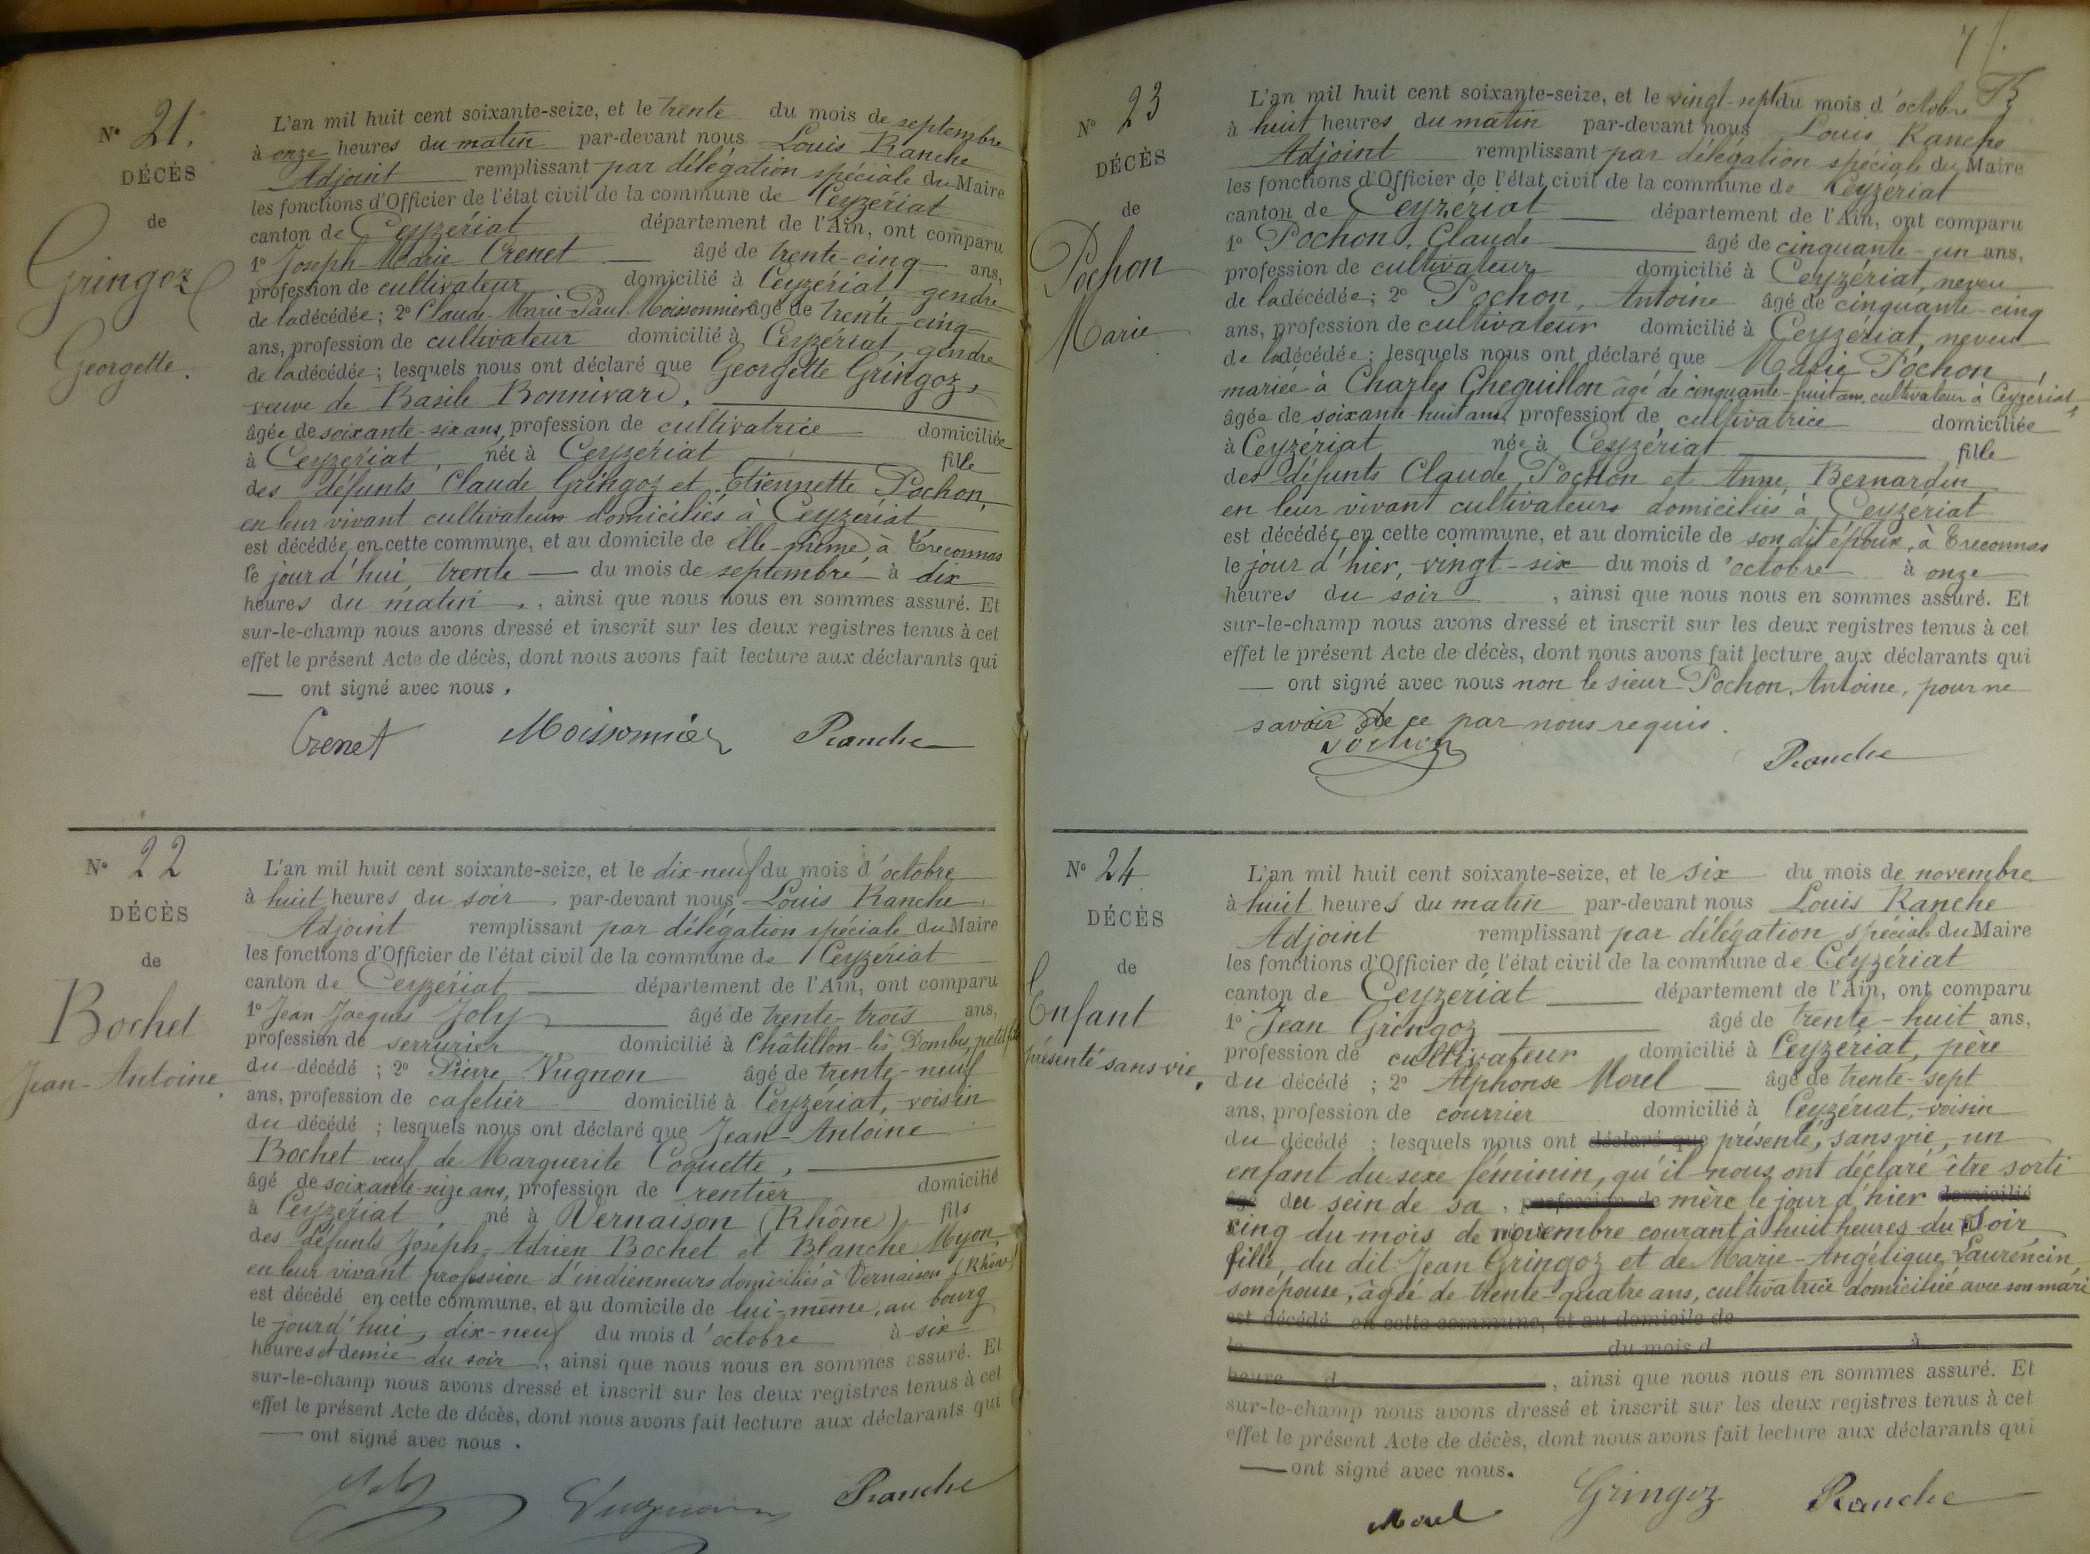 N° 21.
DÉCÈS
de
Gringoz
Georgette.
L'an mil huit cent soixante-seize, et le trente du mois de septembre
à onze heures du matin par-devant nous Louis Ranche
Adjoint remplissant par délégation spéciale du Maire
les fonctions d'Officier de l'état civil de la commune de Ceyzériat
canton de Ceyzériat département de l'Ain, ont comparu
1° Joseph-Marie Crenet âgé de trente-cinq ans,
profession de cultivateur domicilié à Ceyzériat, gendre
de la décédée ; 2° Claude-Marie-Paul Moissonnier âgé de trente-cinq
ans, profession de cultivateur domicilié à Ceyzériat, gendre
de la décédée ; lesquels nous ont déclaré que Georgette Gringoz,
veuve de Basile Bonnivard,
âgée de soixante-six ans, profession de cultivatrice domiciliée
à Ceyzériat, née à Ceyzériat fille
des défunts Claude Gringoz et Etiennette Pochon,
en leur vivant cultivateurs domiciliés à Ceyzériat
est décédée en cette commune, et au domicile de elle-même, à Treconnas
le jour d'hui, trente du mois de septembre à dix
heures du matin, ainsi que nous nous en sommes assuré. Et
sur-le-champ nous avons dressé et inscrit sur les deux registres tenus à cet
effet le présent Acte de décès, dont nous avons fait lecture aux déclarants qui
ont signé avec nous.
Crenet Moissonnier Ranche
N° 22
DÉCÈS
de
Bochet
Jean-Antoine.
L'an mil huit cent soixante-seize, et le dix-neuf du mois d'octobre
à huit heures du soir par-devant nous Louis Ranche
Adjoint remplissant par délégation spéciale du Maire
les fonctions d'Officier de l'état civil de la commune de Ceyzériat
canton de Ceyzériat département de l'Ain, ont comparu
1° Jean Jacques Joly âgé de trente-trois ans,
profession de serrurier domicilié à Châtillon-lès-Dombes, petit fils
du décédé ; 2° Pierre Vugnon âgé de trente-neuf
ans, profession de cafetier domicilié à Ceyzeriat, voisin
du décédé ; lesquels nous ont déclaré que Jean-Antoine
Bochet veuf de Marguerite Coquette,
âgé de soixante-seize ans, profession de rentier domicilié
à Ceyzériat, né à Vernaison (Rhône) fils
des défunts Joseph-Adrien Bochet et Blanche Myon,
en leur vivant profession d'indienneurs domiciliés à Vernaison (Rhône)
est décédé en cette commune, et au domicile de lui-même, au bourg
le jourd'hui, dix-neuf du mois d'octobre à six
heures et demie du soir, ainsi que nous nous en sommes assuré. Et
sur-le-champ nous avons dressé et inscrit sur les deux registres tenus à cet
effet le présent Acte de décès, dont nous avons fait lecture aux déclarants qui
ont signé avec nous.
Ranche
N° 23
DÉCÈS
de
Pochon
Marie
L'an mil huit cent soixante-seize, et le vingt-sept du mois d'octobre
à huit heures du matin par-devant nous Louis Ranche
Adjoint remplissant par délégation spéciale du Maire
les fonctions d'Officier de l'état civil de la commune de Ceyzériat
canton de Ceyzeriat département de l'Ain, ont comparu
1° Pochon, Claude âgé de cinquante-un ans,
profession de cultivateur domicilié à Ceyzériat, neveu
de la décédée ; 2° Pochon, Antoine âgé de cinquante-cinq
ans, profession de cultivateur domicilié à Ceyzériat, neveu
de la décédée ; lesquels nous ont déclaré que Marie Pochon,
mariée à Charles Chequillon âgé de cinquante-huit ans, cultivateur à Ceyzériat,
âgée de soixante huit ans, profession de cultivatrice domiciliée
à Ceyzeriat née à Ceyzériat fille
des défunts Claude Pochon et Anne Bernardin
en leur vivant cultivateurs domiciliés à Ceyzériat
est décédée en cette commune, et au domicile de son dit époux, à Treconnas
le jour d'hier, vingt-six du mois d'octobre à onze
heures du soir, ainsi que nous nous en sommes assuré. Et
sur-le-champ nous avons dressé et inscrit sur les deux registres tenus à cet
effet le présent Acte de décès, dont nous avons fait lecture aux déclarants qui
ont signé avec nous non le sieur Pochon, Antoine, pour ne
savoir de ce par nous requis.
Pochon Ranche
N° 24
DÉCÈS
de
Enfant
présenté sans vie.
L'an mil huit cent soixante-seize, et le six du mois de novembre
à huit heures du matin par-devant nous Louis Ranche
Adjoint remplissant par délégation spéciale du Maire
les fonctions d'Officier de l'état civil de la commune de Céyzériat
canton de Ceyzériat département de l'Ain, ont comparu
1° Jean Gringoz âgé de trente-huit ans,
profession de cultivateur domicilié à Ceyzeriat, père
du décédé ; 2° Alphonse Morel âgé de trente-sept
ans, profession de courrier domicilié à Ceyzériat, voisin
du décédé ; lesquels nous ont déclaré que présenté, sans vie, un
enfant du sexe féminin, qu'il nous ont déclaré être sorti
âgé du sein de sa, profession de mère le jour d'hier domicilié
cinq du mois de novembre courant à huit heures du soir
fille du dit Jean Gringoz et de Marie-Angélique Laurencin
son épouse, âgée de trente-quatre ans, cultivatrice domiciliée avec son mari
est décédé en cette commune, et au domicile de
le du mois d à
heure d, ainsi que nous nous en sommes assuré. Et
sur-le-champ nous avons dressé et inscrit sur les deux registres tenus à cet
effet le présent Acte de décès, dont nous avons fait lecture aux déclarants qui
ont signé avec nous.
Morel Gringoz Ranche